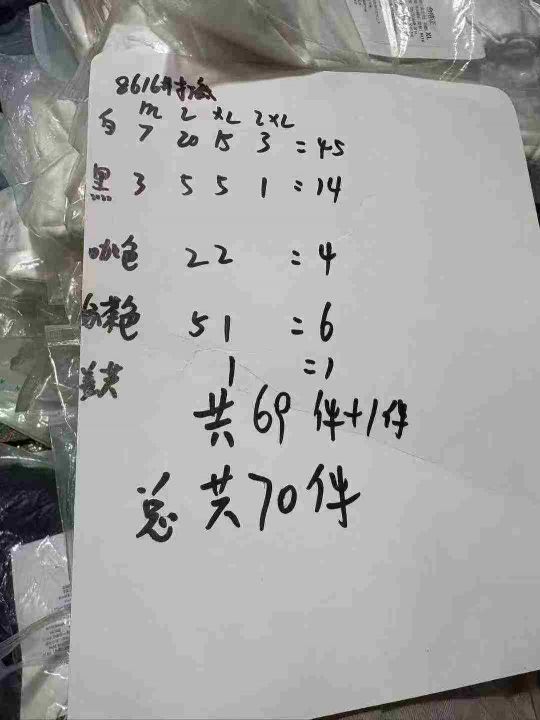 8616#打孔
M L XL 2XL
白 7 20 15 3 =45
黑 3 5 5 1 =14
咖色 2 2 =4
色 5 1 =6
1 =1
共69件+1件
总共70件